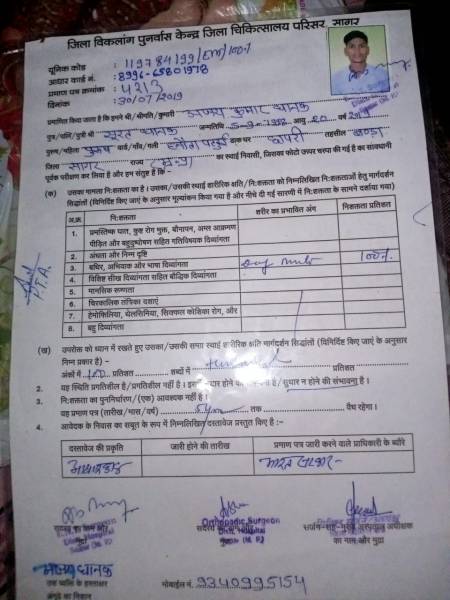 जिला विकलांग पुनर्वास केन्द्र जिला चिकित्सालय परिसर, सागर
यूनिक कोड : 119784199/EM/100%
आधार कार्ड नं. : 8996-65801978
प्रमाण पत्र क्रमांक : 4213
दिनांक : 30/07/2019
प्रमाणित किया जाता है कि हमने श्री/श्रीमति/कुमारी अजय कुमार धानक
पुत्र/पति/पुत्री श्री सुरत धानक जन्मतिथि आयु 20 वर्ष
पुरूष/महिला पुरूष वार्ड/गांव/गली डाक घर तहसील
जिला सागर राज्य (म.प्र) का स्थाई निवासी, जिसका फोटो ऊपर चस्पा की गई है का सावधानी
पूर्वक परीक्षण कर लिया है और हम संतुष्ट है कि -
(क) उसका मामला निःशक्तता का है। उसका/उसकी स्थाई शारीरिक क्षति/निःशक्तता को निम्नलिखित निःशक्तताओं हेतु मार्गदर्शन
सिद्धांतों (विनिर्दिष्ट किए जाए के अनुसार मूल्यांकन किया गया है और नीचे दी गई सारणी में निःशक्तता के सामने दर्शाया गया)
अ.क्र. निःशक्तता शरीर का प्रभावित अंग निःशक्तता प्रतिशत
1. प्रमस्तिष्क घात, कुष्ठ रोग मुक्त, बौनापन, अम्ल आक्रमण
पीड़ित और बहुदुष्पोषण सहित गतिविषयक दिव्यांगता
2. अंधता और निम्न दृष्टि
3. बधिर, अभिवाक और भाषा दिव्यांगता 100%
4. विशिष्ट सीख दिव्यांगता सहित बौद्धिक दिव्यांगता
5. मानसिक रूग्णता
6. चिरकालिक तंत्रिका दशाएं
7. हेमोफिलिया, थेलेसिमिया, सिक्कल कोशिका रोग, और
8. बहु दिव्यांगता
(ख) उपरोक्त को ध्यान में रखते हुए उसका/उसकी समग्र स्थाई शारीरिक क्षति मार्गदर्शन सिद्धांतों (विनिर्दिष्ट किए जाए के अनुसार
निम्न प्रकार है) -
अंकों में 100 प्रतिशत शब्दों में प्रतिशत
2. यह स्थिति प्रगतिशील है/प्रगतिशील नहीं है। सुधार न होने की संभावना है।
3. निःशक्तता का पुनर्निर्धारण/(एक) आवश्यक नहीं है।
यह प्रमाण पत्र (तारीख/मास/वर्ष) तक वैध रहेगा।
4. आवेदक के निवास का सबूत के रूप में निम्नलिखित दस्तावेज प्रस्तुत किए है :-
दस्तावेज की प्रकृति जारी होने की तारीख प्रमाण पत्र जारी करने वाले प्राधिकारी के ब्यौरे
आधारकार्ड भारत सरकार -
Orthopadic Surgeon
Distt. Hospital
का नाम और मुद्रा
अजय धानक
उस व्यक्ति के हस्ताक्षर
अंगूठे का निशान
मोबाईल नं. 9340995154